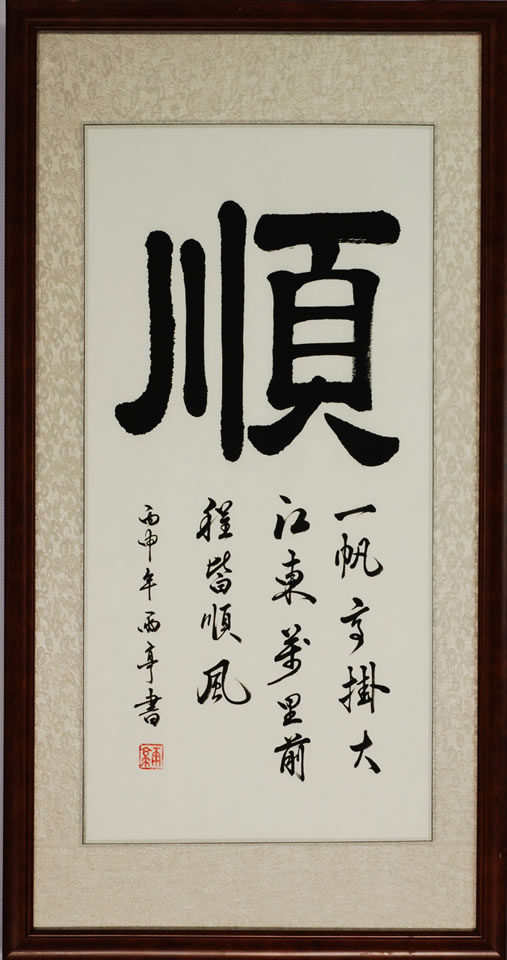 順
一帆高掛大
江東萬里前
程皆順風
丙申年雨亭書